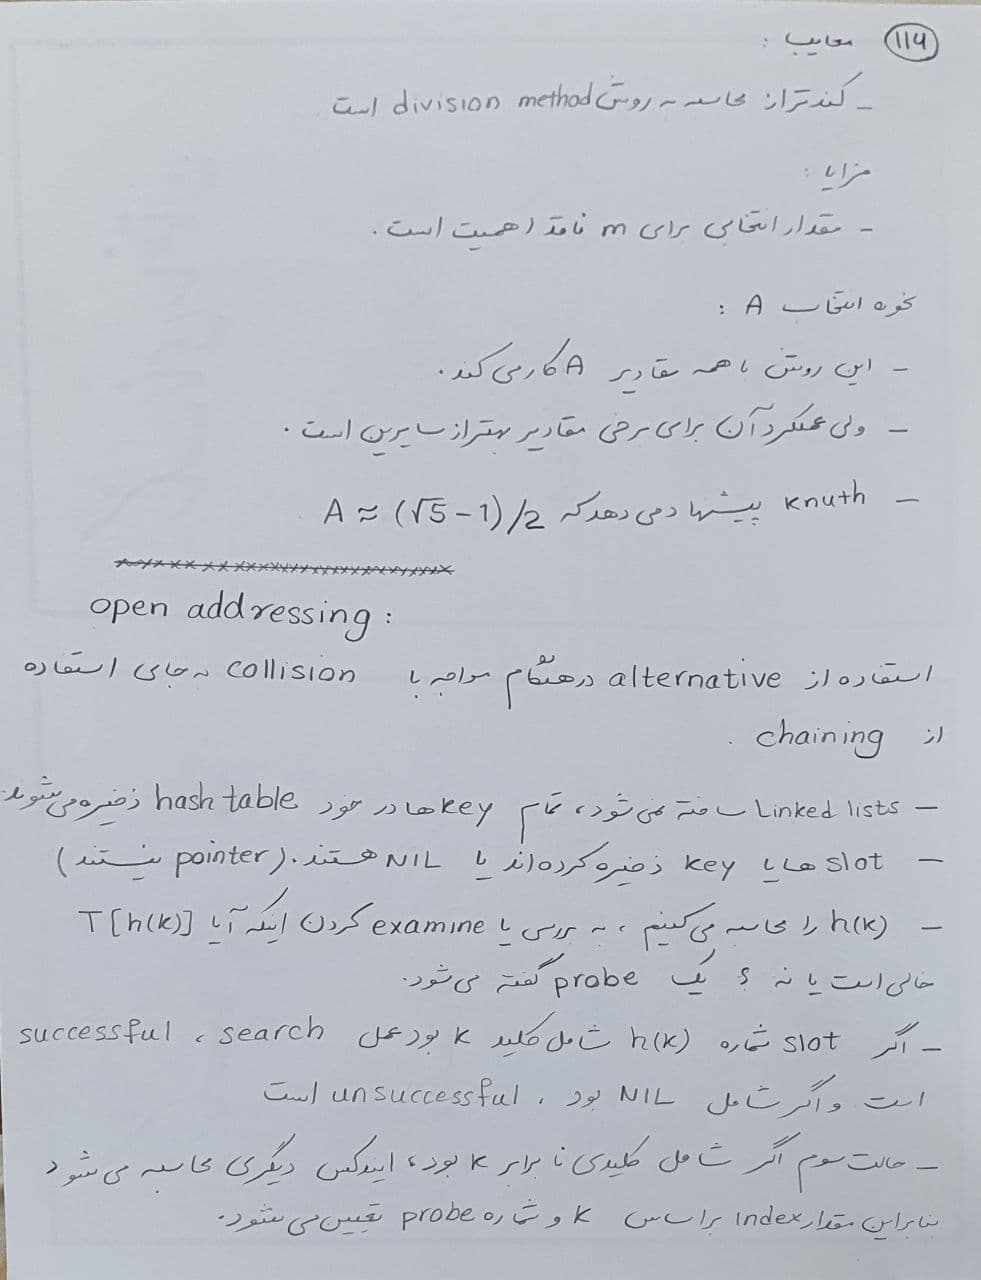 114 معایب :
- کندتر از محاسبه به روش division method است
مزایا :
- مقدار انتخابی برای m فاقد اهمیت است.
نحوه انتخاب A :
- این روش با همه مقادیر A کار می کند.
- ولی عملکرد آن برای برخی مقادیر بهتر از سایرین است.
- knuth پیشنهاد می دهد که A ≈ (√5 - 1)/2
open addressing :
استفاده از alternative در هنگام مواجه با collision به جای استفاده
از chaining .
- Linked lists ساخته نمی شود، تمام key ها در خود hash table ذخیره می شوند.
- slot ها یا key ذخیره کرده اند یا NIL هستند. (pointer نیستند)
- h(k) را محاسبه می کنیم، به بررسی یا examine کردن اینکه آیا T[h(k)]
خالی است یا نه ؟ یک probe گفته می شود.
- اگر slot شماره h(k) شامل کلید k بود عمل search ، successful
است و اگر شامل NIL بود ، unsuccessful است
- حالت سوم اگر شامل کلیدی نابرابر k بود، ایندکس دیگری محاسبه می شود
بنابراین مقدار index براساس k و شماره probe تعیین می شود.